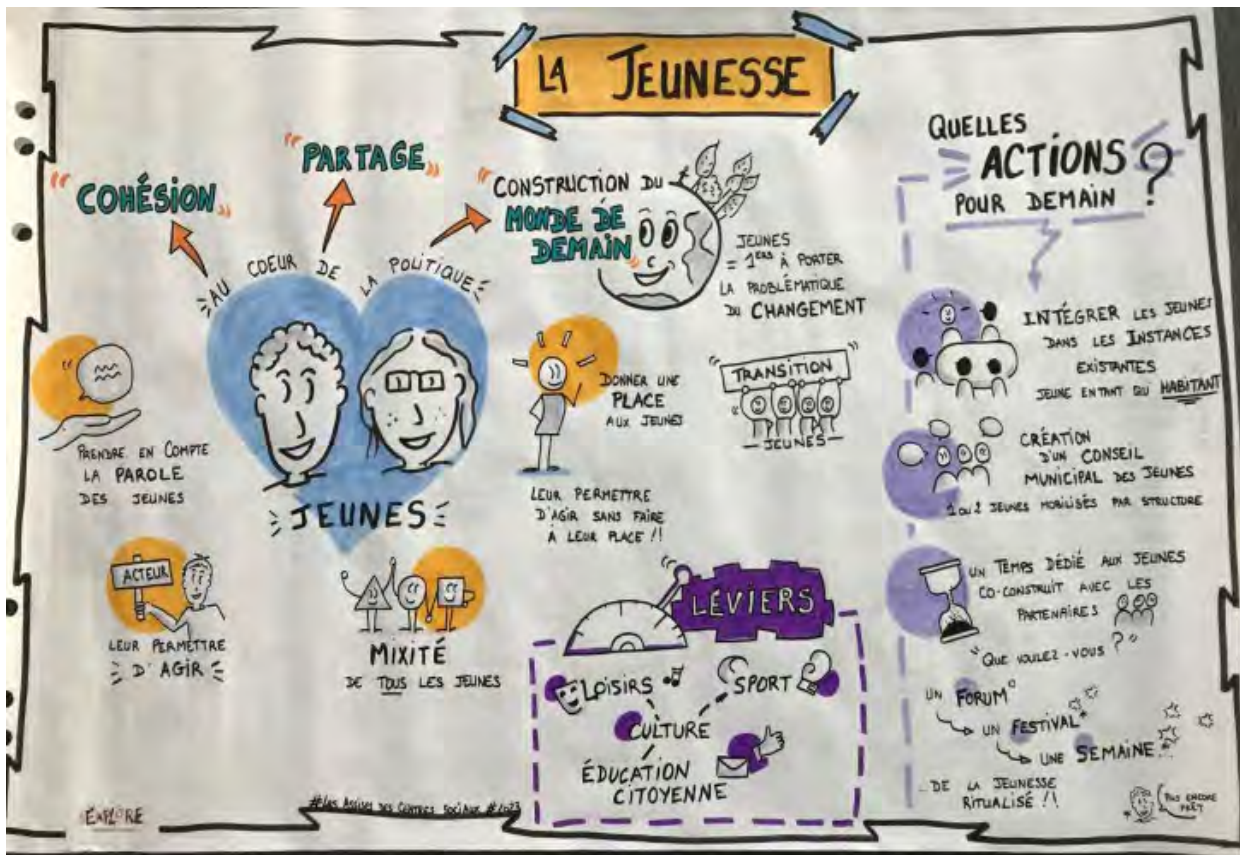 LA JEUNESSE
"COHÉSION"
"PARTAGE"
"CONSTRUCTION DU
MONDE DE
DEMAIN"
AU COEUR DE LA POLITIQUE
JEUNES
JEUNES
= 1ERS À PORTER
LA PROBLÉMATIQUE
DU CHANGEMENT
PRENDRE EN COMPTE
LA PAROLE
DES JEUNES
DONNER UNE
PLACE
AUX JEUNES
TRANSITION
JEUNES
LEUR PERMETTRE
D'AGIR SANS FAIRE
À LEUR PLACE !!
ACTEUR
LEUR PERMETTRE
D'AGIR
MIXITÉ
DE TOUS LES JEUNES
LEVIERS
LOISIRS
SPORT
CULTURE
ÉDUCATION
CITOYENNE
QUELLES
ACTIONS
POUR DEMAIN ?
INTÉGRER LES JEUNES
DANS LES INSTANCES
EXISTANTES
JEUNE ENTANT QU HABITANT
CRÉATION
D'UN CONSEIL
MUNICIPAL DES JEUNES
1 OU 2 JEUNES MOBILISÉS PAR STRUCTURE
UN TEMPS DÉDIÉ AUX JEUNES
CO-CONSTRUIT AVEC LES
PARTENAIRES
"QUE VOULEZ-VOUS ?"
UN FORUM
UN FESTIVAL
UNE SEMAINE
...DE LA JEUNESSE
RITUALISÉ !!
PAS ENCORE
PRÊT
EXPLORE
#LES ASSISES DES CENTRES SOCIAUX #2023